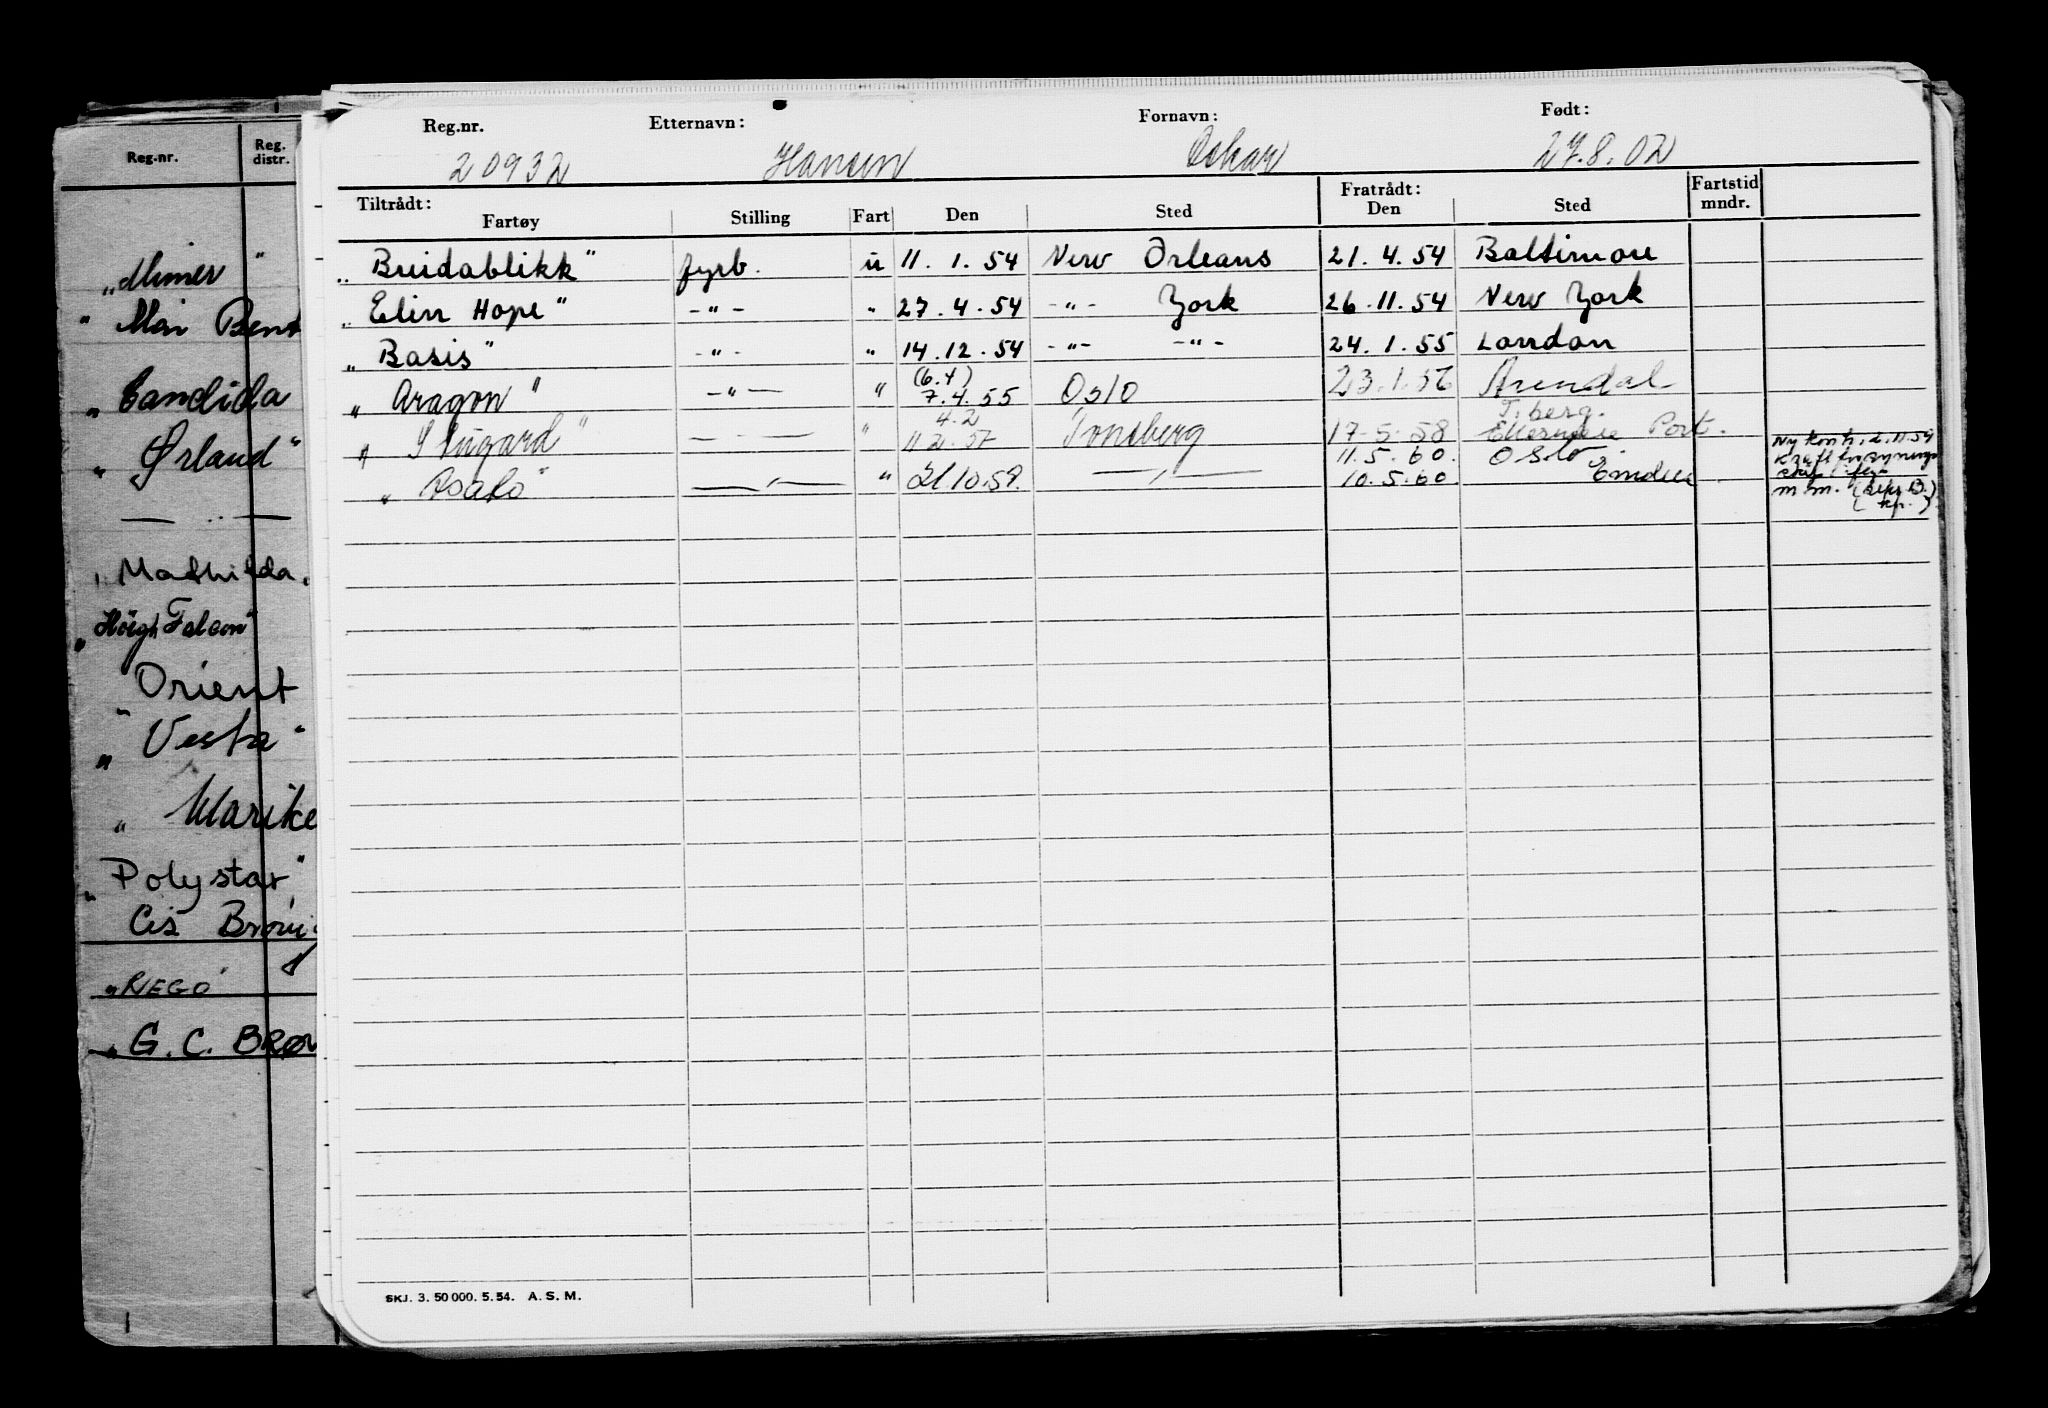 Reg.nr.
Reg. distr.
"Mimer"
" Mari Bent
" Candida
" Ørland"
— " —
" Mathilda "
"Höegh Falcon"
" Orient
" Vesta"
" Marike
" Polystar"
Cis Brøvi
"REGO"
" G. C. BRØV
Reg.nr. Etternavn: Fornavn: Født:
20932 Hansen Oskar 27.8.02
Tiltrådt: Fratrådt: Fartstid
Fartøy Stilling Fart Den Sted Den Sted mndr.
" Breidablikk" fyrb. u 11. 1. 54 New Orleans 21. 4. 54 Baltimore
" Elin Hope" -"- " 27. 4. 54 -"- York 26. 11. 54 New York
" Basis" -"- " 14. 12. 54 -"- -"- 24. 1. 55 London
(6.4)
" Aragon" -"- " 7.4.55 Oslo 23.1.56 Arendal
4.2 T.berg.
" Slugard" —"— " 11.2.57 Tønsberg 17.5.58 Ellesmere Port.
11.5.60. Oslo
" Asalo" —"— " 21.10.58. —"— 10.5.60 Emden
Ny kontr. 2.11.59
m m.
SKJ. 3. 50 000. 5. 54. A. S. M.